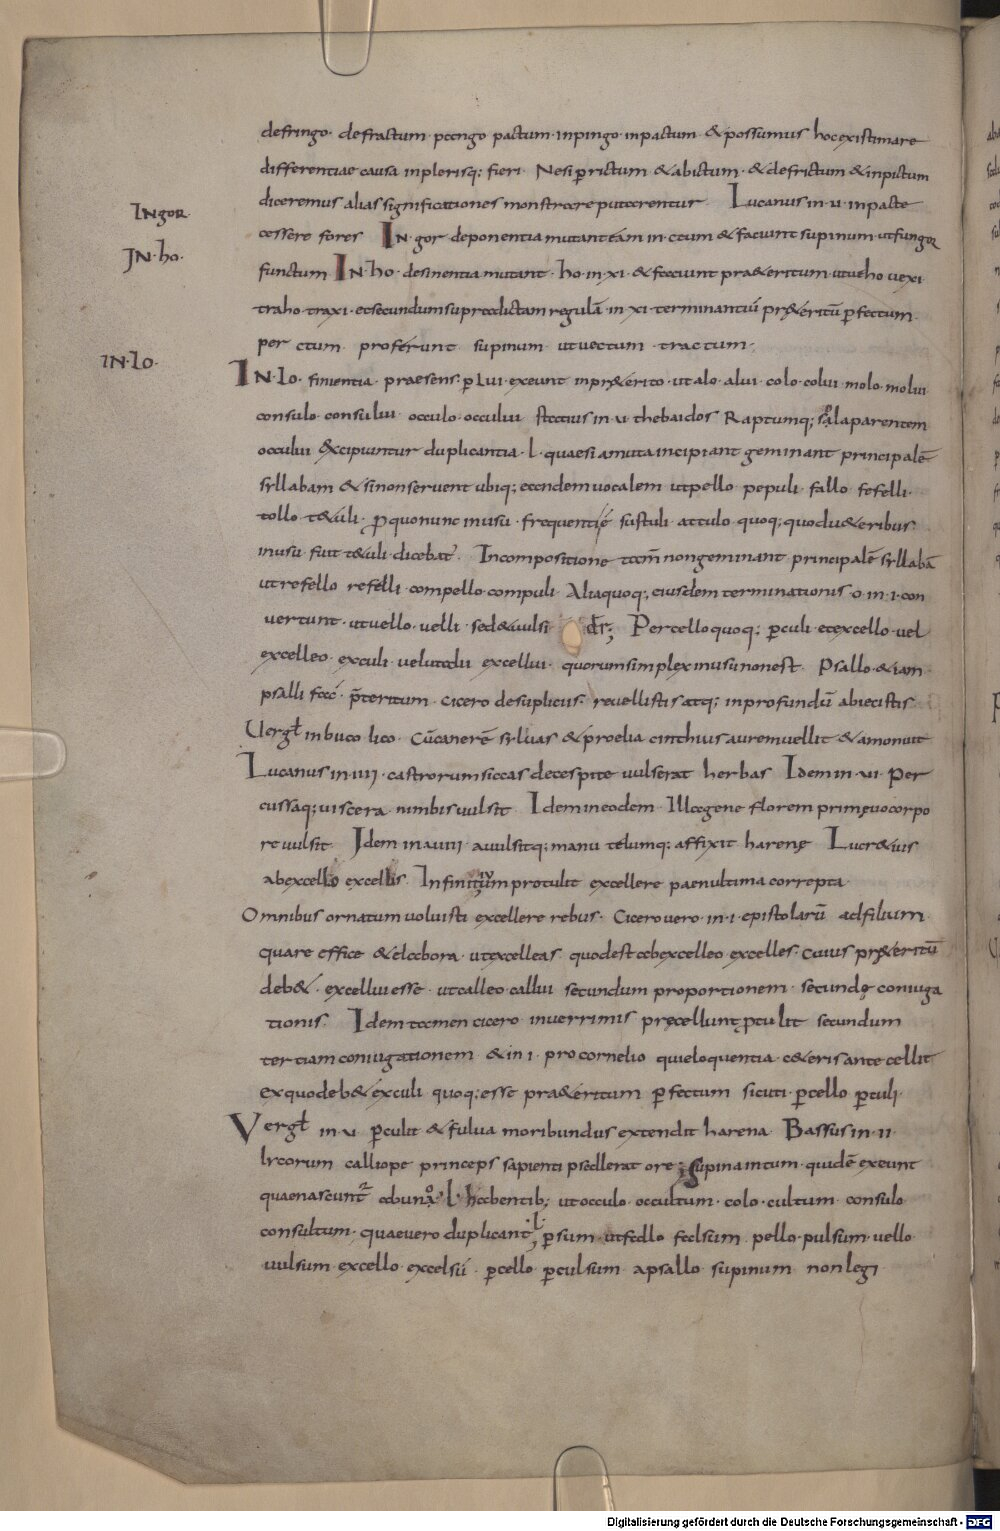 defringo· defractum· pango pactum· inpingo inpactum & possumus hoc existimare
differentiae causa inplerisq; fieri· Nesi p̲rictum & abictum· & defrictum & inpictum
diceremus alias significationes monstrare putarentur Lucanus in ·u· inpacte
INgor·
cessere fores IN·gor deponentia mutant eam in·ctum & faciunt supinum· ut fungor
JN·ho·
functum IN·ho· desinentia mutant· ho·in·xi· & faciunt pra&eritum· ut ueho uexi
traho·traxi· et secundum supradictam regulā in·xi· terminantiū pr&eritū p̲fectum
per ctum· proferunt supinum ut uectum· tractum·
IN·lo·
IN·lo· finientia· praesens· p̲ lui· exeunt inpr&erito· ut alo· alui· colo·colui· molo·molui
consulo·consului· occulo·occului statius in·u·thebaidos Raptumq; sola parentem
occului &cipiuntur duplicantia· l· quae si a muta incipiant geminant principalē
syllabam & si non seruent ubiq; eandem uocalem ut pello pepuli· fallo fefelli·
tollo t&uli· p̲ quo nunc in usu· frequentie sustuli· attulo quoq; quod u&eribus
in usu fuit t&uli dicebat· In compositione tam̄ non geminant principalē syllabā
ut refello refelli·compello·compuli· Alia quoq; eiusdem terminationis ·o·in·i·con
uertunt· ut uello·uelli·sed & uulsi dr̄; Percello quoq; p̲culi· et excello·uel
excelleo·exculi·uel ut alii excellui· quorum simplex in usu non est· Psallo·& iam
psalli fac· p̄teritum· cicero desuplicius· reuellistis atq; in profundū abiecistis
Uergł in buco lico· Cū canerē syluas & proelia cinthius aurem uellit & amonuit
Lucanus in·iiii·castrorum siccas de cespite uulserat herbas Idem in·ui·Per
cussaq; uiscera nimbis uulsit Idem in eodem· Illa gene florem primeuo corpo
re uulsit Idem in auiiii·auulsitq; manu telumq; affixit harenę Lucr&ius
ab excello excellis· Infinitiuum protulit excellere paenultima correpta·
Omnibus ornatum uoluisti excellere rebus· Cicero uero·in·i·epistolarū ad filium·
quare effice & elabora·ut excelleas· quod est ab excelleo excelles· Cuius pr&eritū
deb&·excellui esse·ut calleo·callui secundum proportionem·secundę coniuga
tionis· Idem tamen cicero inuerrimis pręcellunt p̲tulit secundum
tertiam coniugationem & in i·pro cornelio qui eloquentia c&eris antecellit
ex quo deb& exculi quoq; esse pra&eritum p̲fectum sicuti·p̲cello p̲culi·
Vergł in·u· p̲culit & fulua moribundus extendit harena· Bassus in·ii
lyricorum calliope princeps sapienti psallerat ore; Supina in tum·quidē exeunt
quae nascunt̄ ab una ·l·habentib; ut occulo·occultum·colo·cultum·consulo
consultum·quae uero duplicant ·l· p̲ sum·ut fallo falsum pello·pulsum·uello
uulsum·excello·excelsū· p̲cello·p̲culsum·a psallo supinum non legi·
Digitalisierung gefördert durch die Deutsche Forschungsgemeinschaft - DFG